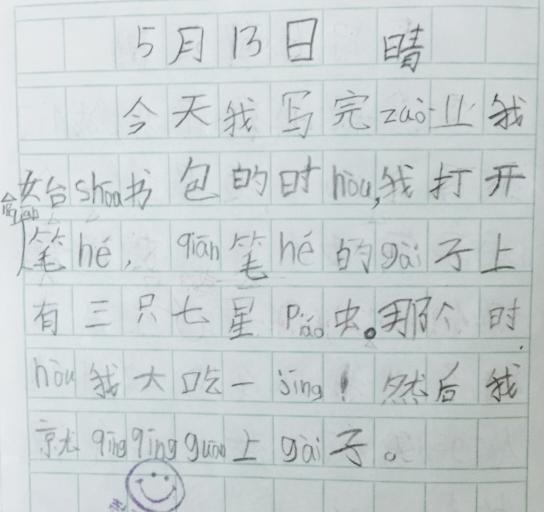 5月13日 晴
今天我写完zuò业我
始shōu书包的时hòu,我打开
qiān笔hé,qiān笔hé的gài子上
有三只七星piáo虫。那个时
hòu我大吃一jīng!然后我
就qīngqīngguān上gài子。